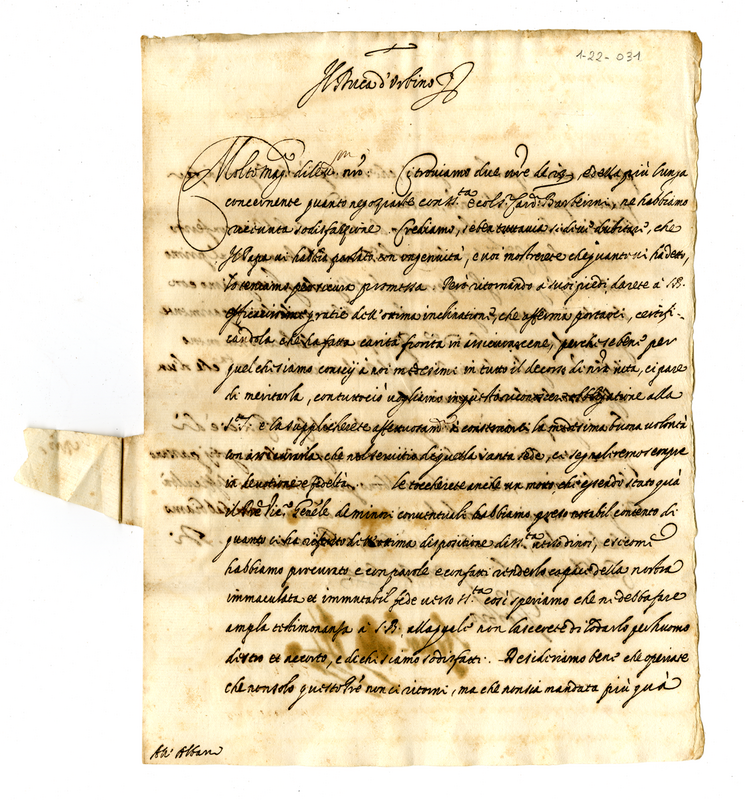 1-22-031
Il Duca d'Urbino
Molto Mag.co dilett.mo nro. Ci troviamo due vre de 15, e della più lunga
concernente quanto negoziaste con N. S.ta e col S.r Card. Barberini, ne habbiamo
ricevuta sodisfazione. Crediamo, seben tuttavia si deve dubitare, che
Il Papa vi habbia parlato con ingenuità, e voi mostrerete che quanto vi ha detto,
lo teniamo per sicura promessa. Però ritornando a suoi piedi darete à S. B.
efficacissime gratie dell'ottima inclinatione, che afferma portarci, certifi-
candola che ha fatta carità fiorita in assicurarcene, perche sebene per
quel che siamo conscij à noi medesimi in tutto il decorso di nra vita, ci pare
di meritarla, contuttociò vogliamo in questo riconoscere obbligatione alla
S.tà S. e la supplicherete affettuosam.te à conservarci la medesima buona volontà
con assicurarla che nel servitio di quella santa sede, ci segnaleremo sempre
in devotione e fedeltà. le toccherete anche un motto, che essendo stato quà
il Pre Vic.o Genele de minori conventuali habbiamo preso notabil contento di
quanto ci ha riferito dell'ottima dispositione di N. S.ta verso di noi, e si come
habbiamo procurato e con parole e con fatti renderlo capace della nostra
immaculata et immutabil fede verso S. S.ta così speriamo che ne debba fare
ampla testimonanza à S. B. alla quale non lascerete di lodarlo per huomo
destro et accorto, e di chi siamo sodisfatti. Desideriamo bene che operiate
che non solo questo Pre non ci ritorni, ma che non sia mandata più quà
Albani